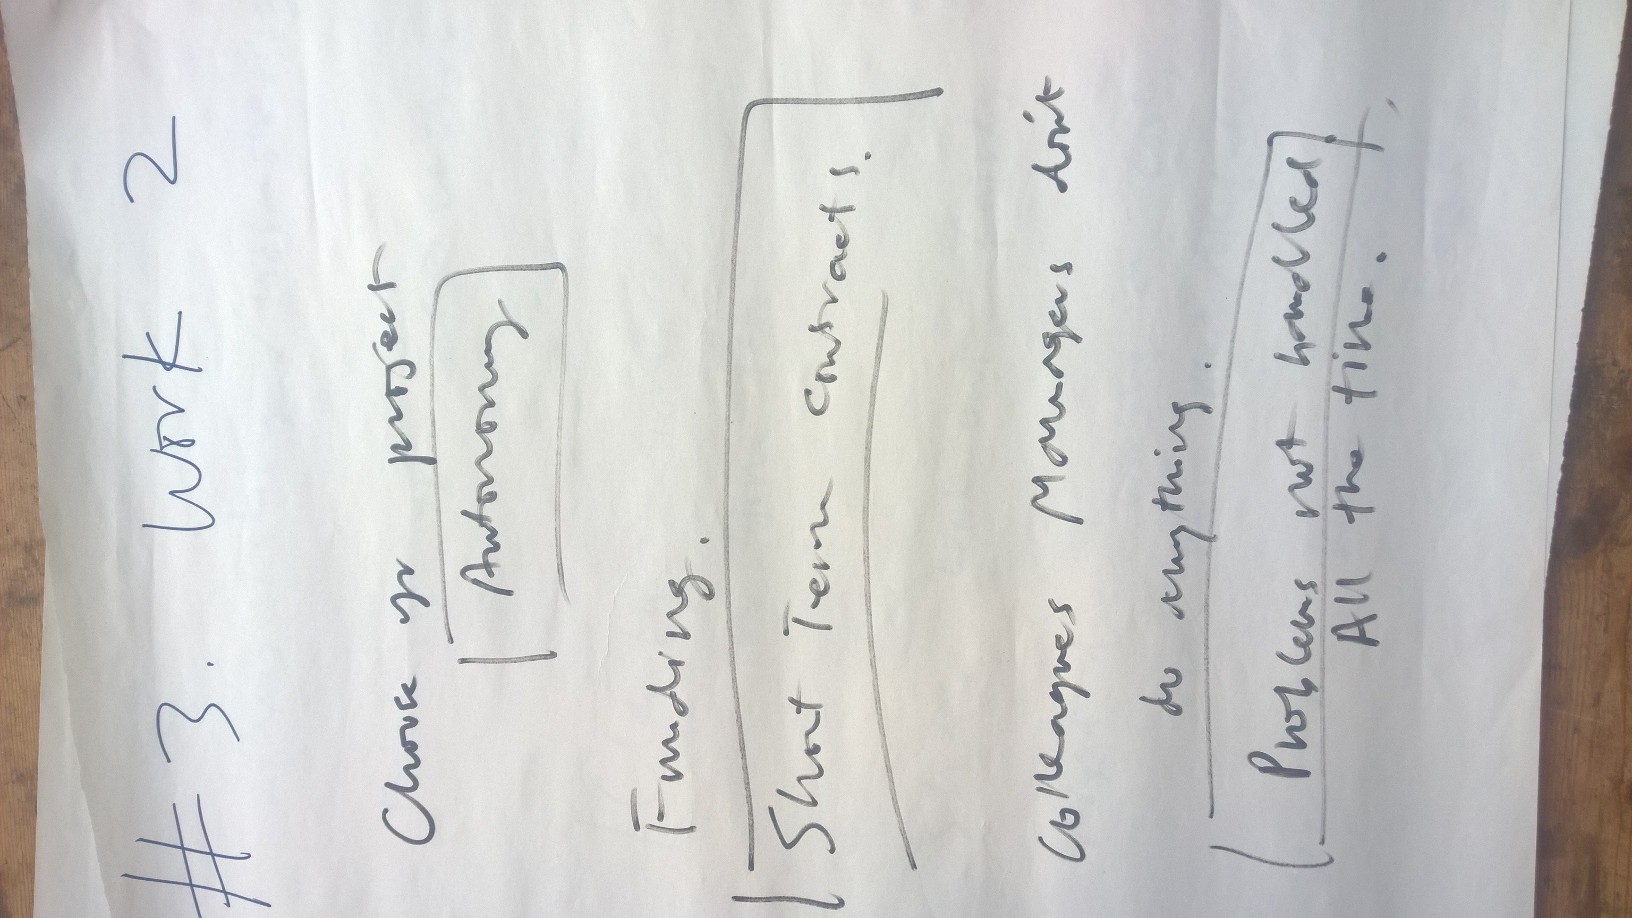 #3. Work 2
Choose yr project
Autonomy
Funding.
Short Term contracts.
Colleagues Managers don't
do anything.
Problems not handled
All the time.